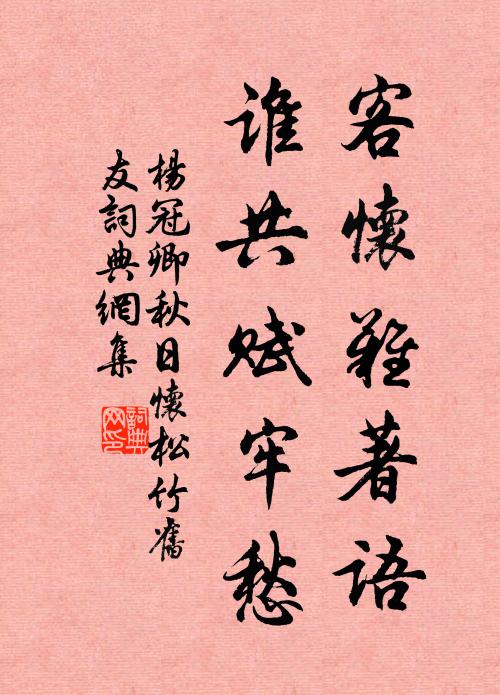 客懷難著語
誰共賦牢愁
楊冠卿秋日懷松竹舊
友詞典網集
詞典
网印